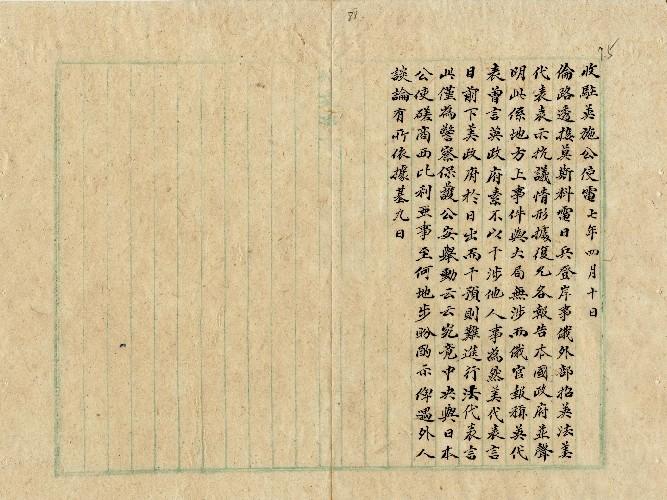 81
75
收駐英施公使電七年四月十日
倫路透接莫斯科電日兵登岸事俄外部招英法美
代表表示抗議情形據復允各報告本國政府並聲
明此係地方上事件與大局無涉而俄官報稱英代
表曾言英政府素不以干涉他人事為然美代表言
日前下美政府於日出而干預則難進行法代表言
此僅為警察保護公安舉動云云究竟中央與日本
公使磋商西比利亞事至何地步盼酌示俾遇外人
談論有所依據基九日